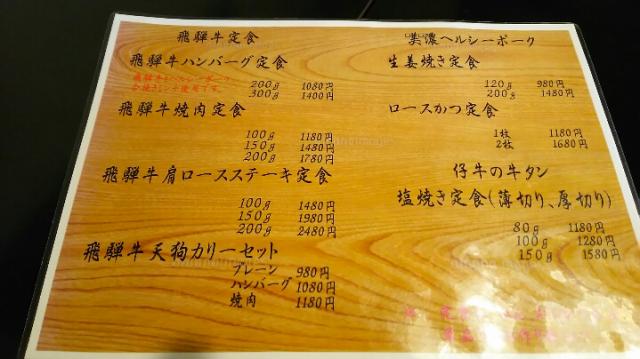 飛騨牛定食
飛騨牛ハンバーグ定食
飛騨牛とヘルシーポーク
合挽きミンチ使用です。
200g 1080円
300g 1400円
飛騨牛焼肉定食
100g 1180円
150g 1480円
200g 1780円
飛騨牛肩ロースステーキ定食
100g 1480円
150g 1980円
200g 2480円
飛騨牛天狗カリーセット
プレーン 980円
ハンバーグ 1080円
焼肉 1180円
美濃ヘルシーポーク
生姜焼き定食
120g 980円
200g 1480円
ロースかつ定食
1枚 1180円
2枚 1680円
仔牛の牛タン
塩焼き定食(薄切り、厚切り)
80g 1180円
100g 1280円
150g 1580円